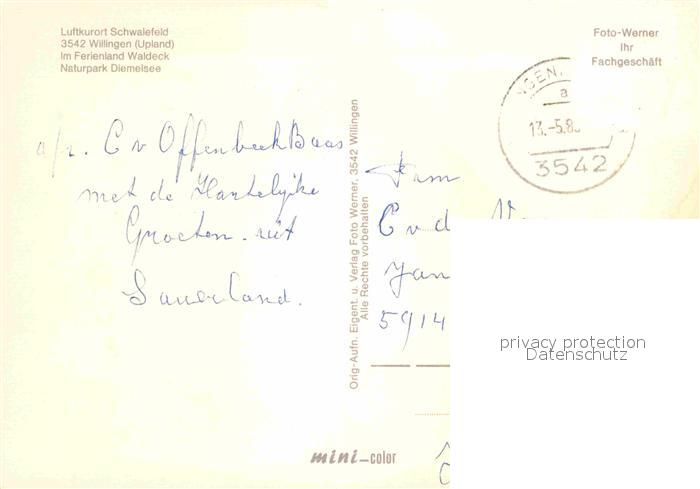 Luftkurort Schwalefeld
3542 Willingen (Upland)
Im Ferienland Waldeck
Naturpark Diemelsee
Foto-Werner
Ihr
Fachgeschäft
NGEN,
a
13.-5.8
3542
C v Offenbeek Baas
met de Hartelyike
Groeten. uit
Sauerland.
Orig-Aufn. Eigent. u. Verlag Foto Werner, 3542 Willingen
Alle Rechte vorbehalten
Fam
C v d
Jan
5914
privacy protection
Datenschutz
mini-color